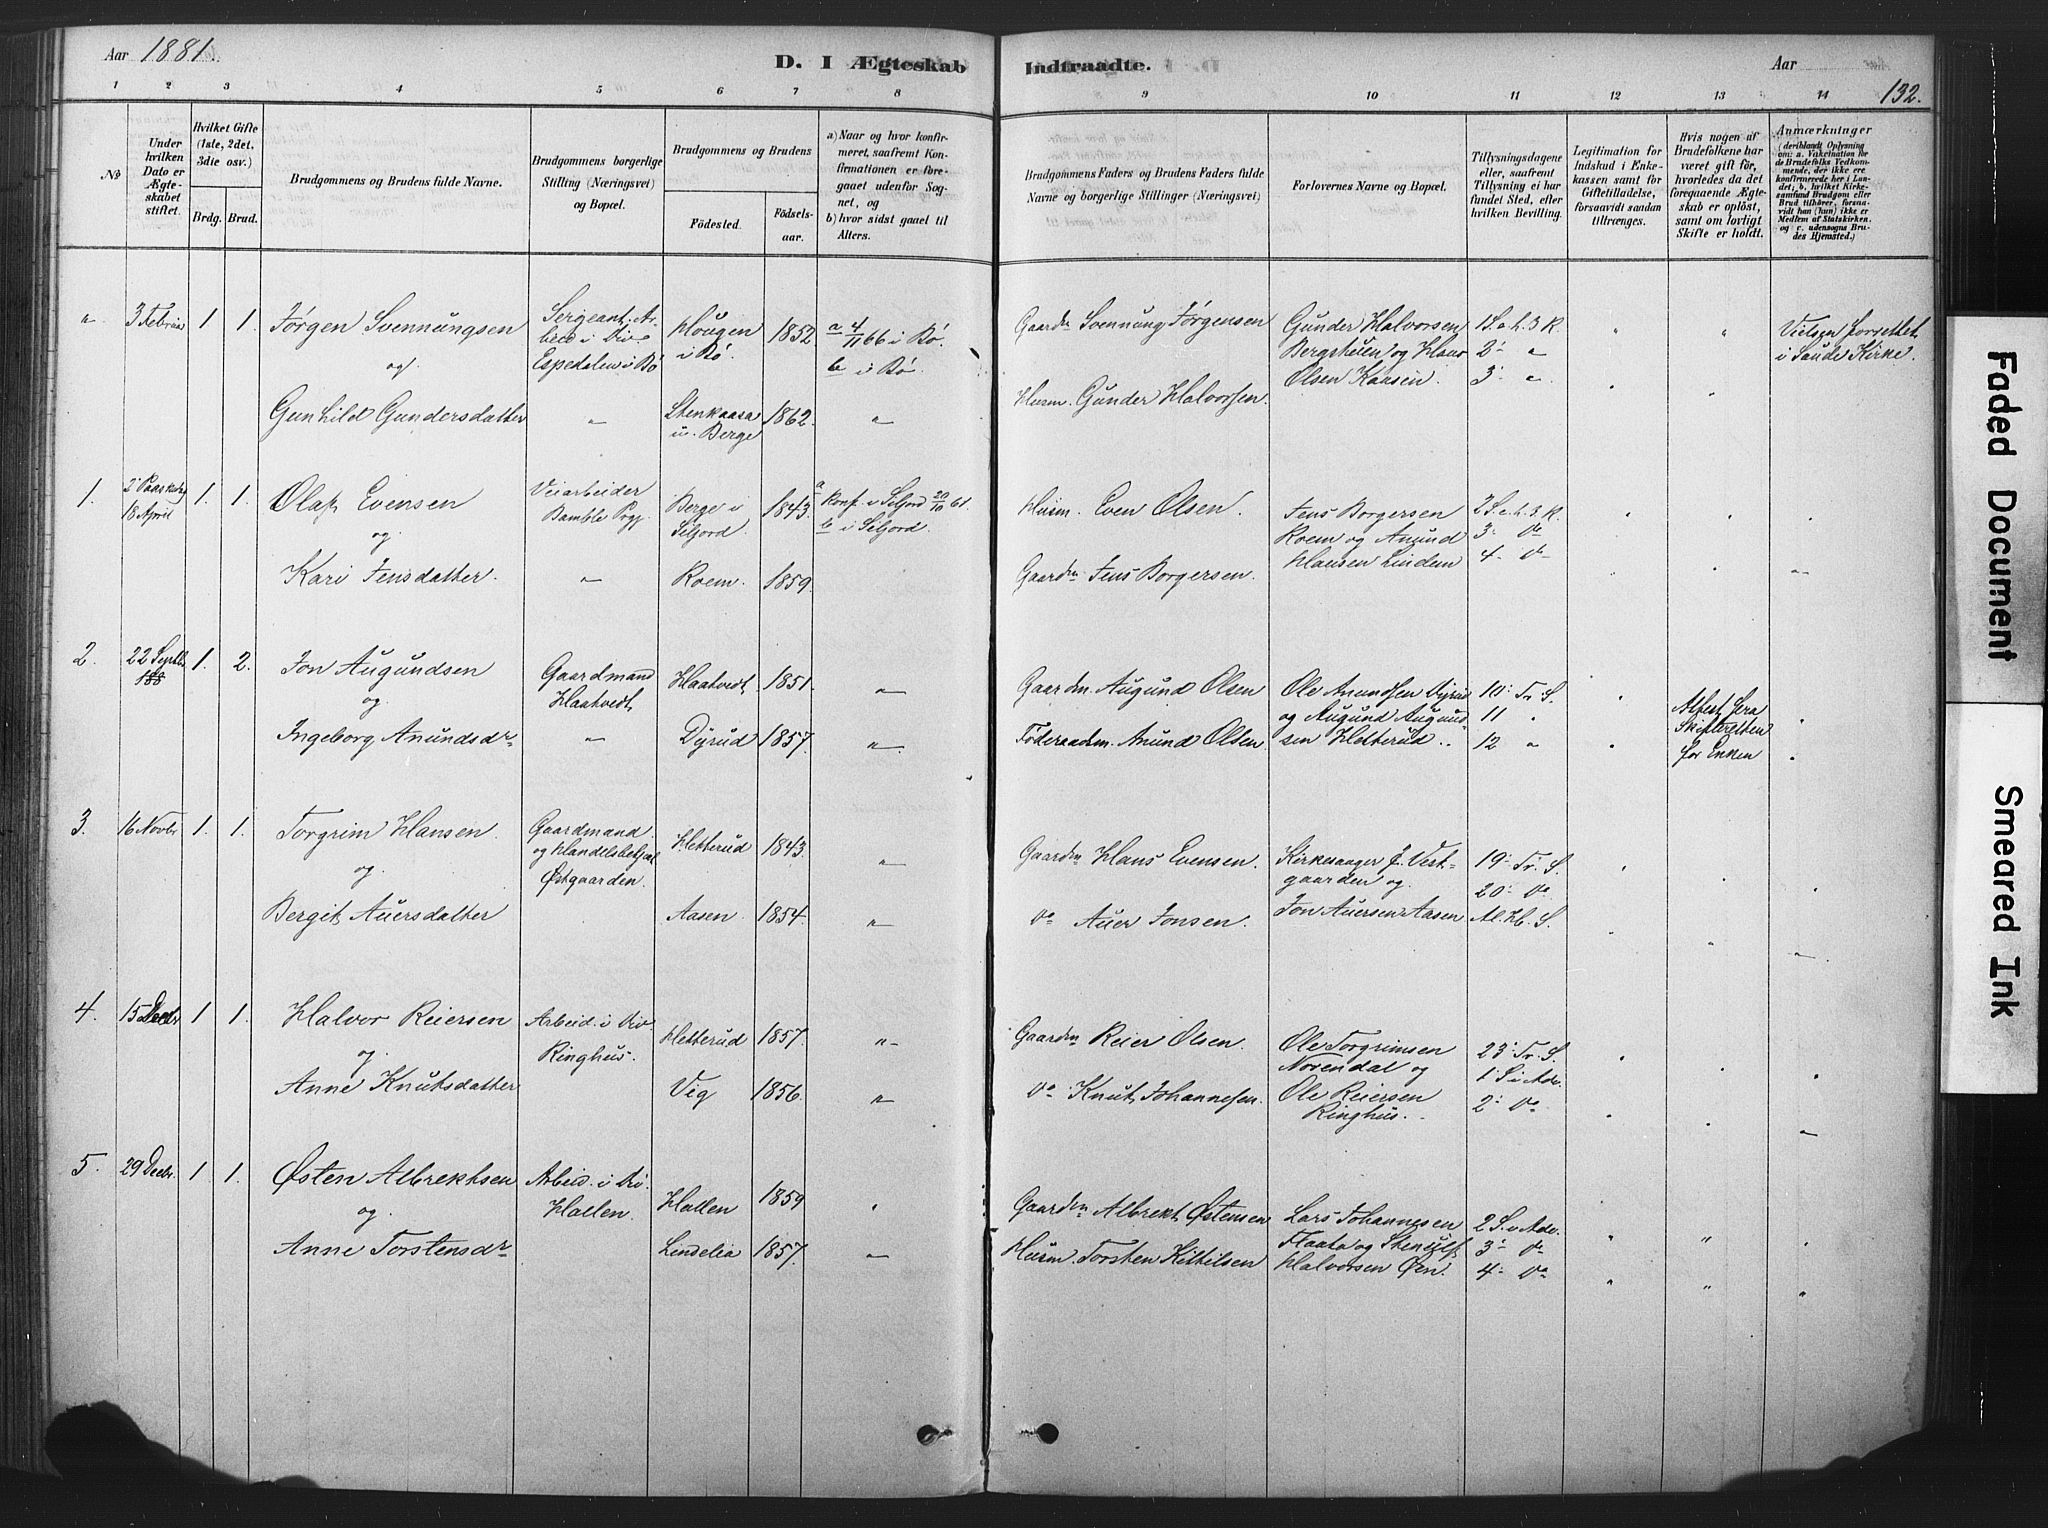 Aar 1881.
D. I Ægteskab Indtraadte.
Aar
132.
1 2 3 4 5 6 7 8 9 10 11 12 13 14
No
Under hvilken Dato er Ægteskabet stiftet.
Hvilket Gifte (1ste, 2det, 3die osv.)
Brdg. Brud.
Brudgommens og Brudens fulde Navne.
Brudgommens borgerlige Stilling (Næringsvei) og Bopæl.
Brudgommens og Brudens
Fødested.
Fødselsaar.
a) Naar og hvor konfirmeret, saafremt Konfirmationen er foregaaet udenfor Sognet, og
b) hvor sidst gaaet til Alters.
Brudgommens Faders og Brudens Faders fulde Navne og borgerlige Stillinger (Næringsvei)
Forlovernes Navne og Bopæl.
Tillysningsdagene eller, saafremt Tillysning ei har fundet Sted, efter hvilken Bevilling.
Legitimation for Indskud i Enkekassen samt for Giftetilladelse, forsaavidt saadan tiltrænges.
Hvis nogen af Brudefolkene har været gift før, hvorledes da det foregaaende Ægteskab er opløst, samt om lovligt Skifte er holdt.
Anmærkninger (deriblandt Oplysning om: a. Vakcination for de Brudefolks Vedkommende, der ikke ere konfirmerede her i Landet; b. hvilket Kirkesamfund Brudgom eller Brud tilhører, forsaavidt han (hun) ikke er Medlem af Statskirken. og c. udensogns Brudes Hjemsted.)
" 3 Februar 1 1. Jørgen Svennungsen
og
Gunhild Gundersdatter
Sergeant. Arbeid i Div
Espedalen i Bø
"
Hougen i Bø. 1852
Stenkaasa u. Berge 1862.
a 4/11 66 i Bø.
b i Bø.
"
Gaardm Svennung Jørgensen
Husm. Gunder Halvorsen.
Gunder Halvorsen
Bergstuen og Hans
Olsen Kaasen.
1 S. e. h. 3 K.
2 "
3 "
Vielsen forrettet
i Saude Kirke.
1. 2 Paaskedag 18 April 1. 1. Olaf Evensen
og
Kari Jensdatter.
Veiarbeider
Bamble Prgj.
"
Berge i Seljord. 1843.
Roem. 1859.
a konf. i Seljord 20/10 61.
b i Seljord.
Husm. Even Olsen.
Gaardm Jens Borgersen.
Jens Borgersen
Roem og Anund
Hansen Lindem
2 S. e. h. 3. K.
3 do
4 do
2. 22 Septbr 188 1. 2. Jon Augundsen
og
Ingeborg Anundsdr
Gaardmand
Haatvedt
"
Haatvedt 1851.
Dyrud 1857.
"
"
Gaardm. Augund Olsen
Føderaadsm. Anund Olsen
Ole Anundsen Dyrud
og Augund Augundsen Hetterud.
10 Tr. S.
11 "
12 "
Attest fra
Skifteretten
for Enken
3. 16 Novbr 1. 1. Torgrim Hansen.
og
Bergit Auersdatter
Gaardmand
og Handelsbetj.
Østgaarden.
Hetterud 1843.
Aasen. 1854.
"
"
Gaardm Hans Evensen.
do Auer Jonsen.
Kirkesanger J. Vestgaarden og
Jon Auersen Aasen
19 Tr. S.
20 do
Al. H. S.
4. 15 Decbr 1 1. Halvor Reiersen
og
Anne Knutsdatter
Arbeid. i Div
Ringhus.
Hetterud 1857.
Vig 1856.
"
"
Gaardm Reier Olsen.
do Knut Johannesen.
Ole Torgrimsen
Norendal og
Ole Reiersen
Ringhus.
23 Tr. S.
1 S. i Adv.
2 do
5. 29 Decbr. 1 1. Østen Albrektsen
og
Anne Torstensdr
Arbeid. i Div.
Hallen.
Hallen 1859
Lindelia 1857.
"
Gaardm Albrekt Østensen
Husm. Torsten Kittilsen
Lars Johannesen
Flaata og Stenulf
Halvorsen Øen.
2 S. i Adv.
3 do
4 do
Faded Document
Smeared Ink